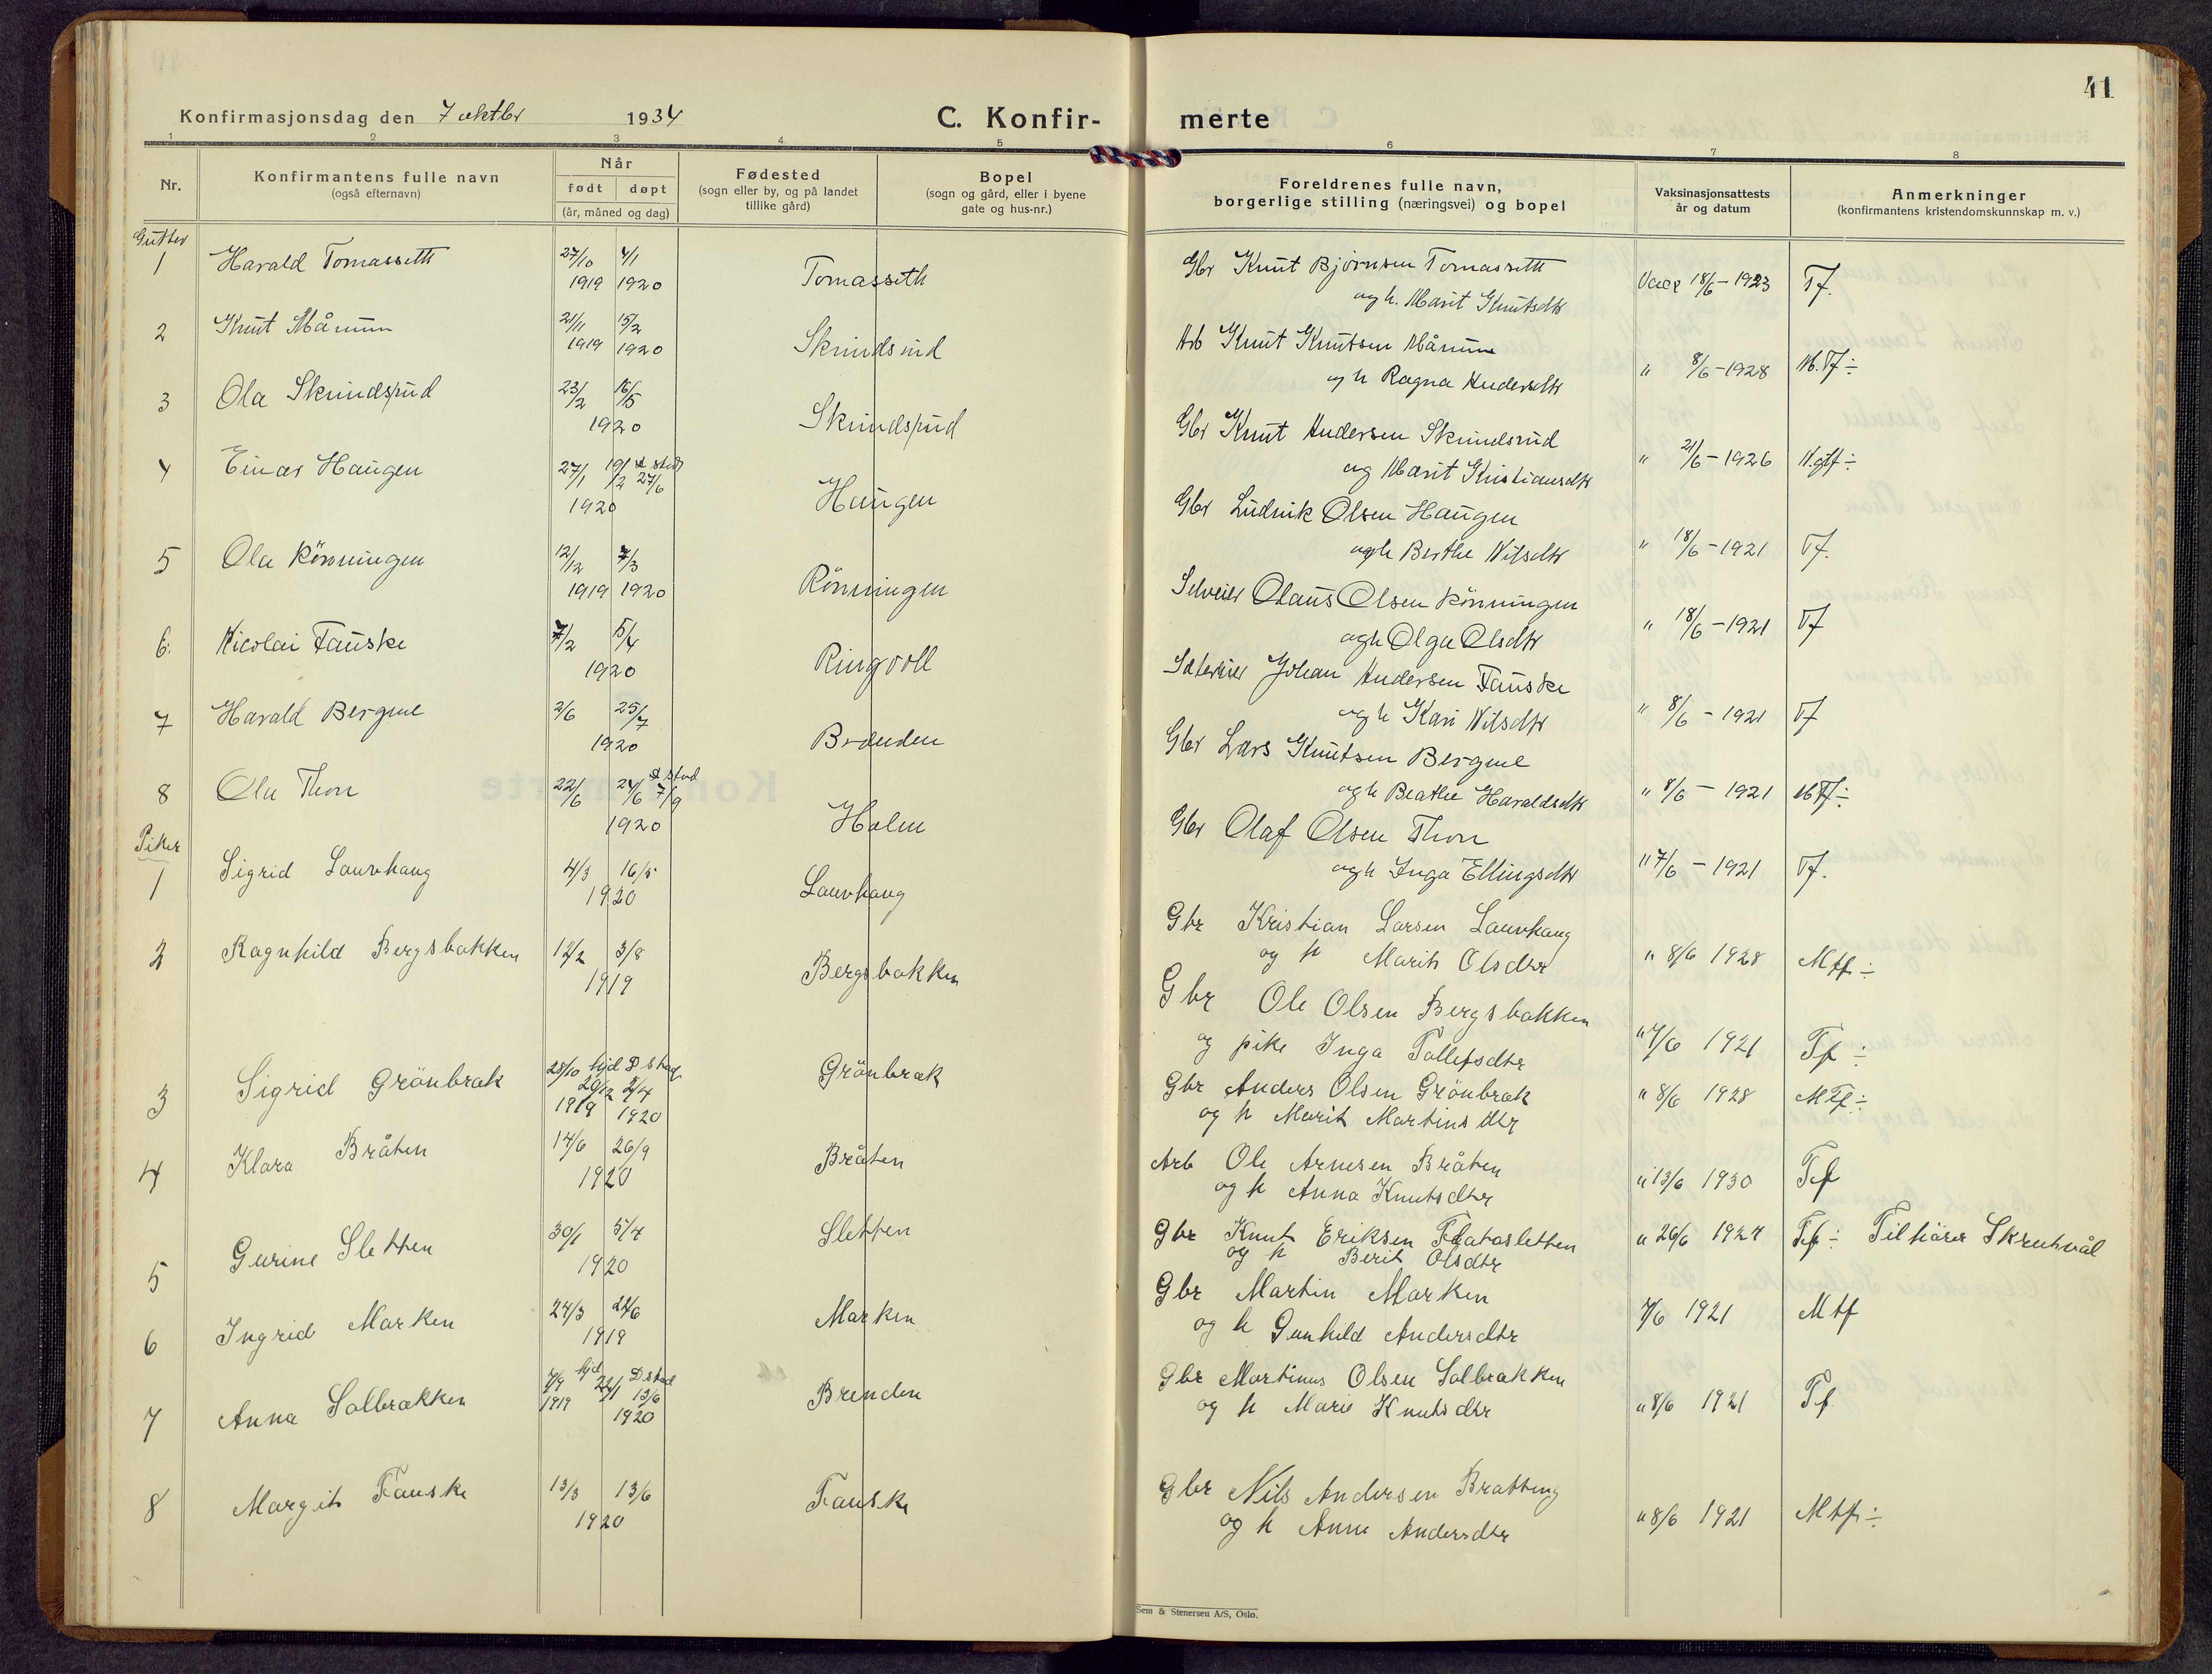 41
Konfirmasjonsdag den 7 oktbr 1934
C. Konfir-
merte
1 2 3 4 5 6 7 8
Nr.
Konfirmantens fulle navn
(også efternavn)
Når
født døpt
(år, måned og dag)
Fødested
(sogn eller by, og på landet
tillike gård)
Bopel
(sogn og gård, eller i byene
gate og hus-nr.)
Foreldrenes fulle navn,
borgerlige stilling (næringsvei) og bopel
Vaksinasjonsattests
år og datum
Anmerkninger
(konfirmantens kristendomskunnskap m. v.)
Gutter
1 Harald Tomasseth 27/10 4/1 Tomasseth Gbr Knut Bjørnsen Tomasseth Vacc 18/6 - 1923 Tf.
1919 1920 og h. Marit Knutsdtr
2 Knut Månum 21/11 15/2 Skrindsrud Arb Knut Knutsen Månum
1919 1920 og h Ragna Andersdtr " 8/6 - 1928 M.Tf ÷
3 Ola Skrindsrud 23/2 16/5 Skrindsrud Gbr Knut Andersen Skrindsrud
1920 og Marit Kristiansdtr " 21/6 - 1926 ÷
4 Einar Haugen 27/1 19/2 st stad 27/6 Haugen Gbr Ludvik Olsen Haugen
1920 og h Berthe Nilsdtr " 18/6 - 1921 Tf.
5 Ola Rönningen 12/12 7/3 Rönningen Selveier Olaus Olsen Rönningen
1919 1920 og h Olga Olsdtr " 18/6 - 1921 Tf
6. Nicolai Fauske 7/2 5/4 Ringvoll Johan Andersen Fauske
1920 og h Kari Nilsdtr " 8/6 - 1921 Tf
7 Harald Bergene 2/6 25/7 Brænden Gbr Lars Knutsen Bergene
1920 og h Beathe Haraldsdtr " 8/6 - 1921 MTf ÷
8 Ola Thon 22/6 24/6 st stad 7/9 Holm Gbr Olaf Olsen Thon
1920 og h Inga Ellingsdtr " 7/6 - 1921 Tf.
Piker
1 Sigrid Lauvhaug 4/3 16/5 Lauvhaug Gbr Kristian Larsen Lauvhaug
1920 og h Marit Olsdtr " 8/6 1928 Mtf ÷
2 Ragnhild Bergsbakken 12/2 3/8 Bergsbakken Gbr Ole Olsen Bergsbakken
1919 og pike Inga Tollefsdtr " 7/6 1921 Tf ÷
3 Sigrid Grönbræk 28/10 hjd 20/12 D stad 2/4 Grönbræk Gbr Anders Olsen Grönbræk " 8/6 1928 MTf ÷
1919 1920 og h Marit Martinsdtr
4 Klara Bråten 14/6 26/9 Bråten Arb Ole Arnesen Bråten
1920 og h Anna Knutsdtr " 13/6 1930 Tf
5 Gurine Sletten 30/1 5/4 Sletten Gbr Knut Eriksen Fløtasletten " 26/6 1924 Tf ÷ Tilhører Skrutvål
1920 og h Berit Olsdtr
6 Ingrid Marken 24/3 22/6 Marken Gbr Martin Marken
1919 og h Gunhild Andersdtr 7/6 1921 Mtf
7 Anna Solbrækken 7/9 hjd 22/1 D stad 13/6 Brenden Gbr Martinus Olsen Solbrækken
1919 1920 og h Marie Knutsdtr " 8/6 1921 Tf
8 Margit Fauske 13/3 13/6 Fauske Gbr Nils Andersen Bratteng
1920 og h Anne Andersdtr " 8/6 1921 Mtf ÷
Sem & Stenersen A/S, Oslo.